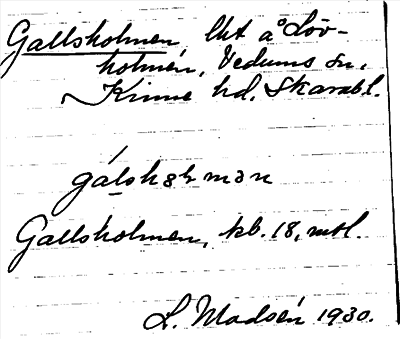 Gallsholmen, lht å Löv-
holmen, Vedums sn,
Kinne hd. Skarab.l.
gálshəlmən
Gallsholmen, kb. 18, mtl.
L. Madsén 1930.